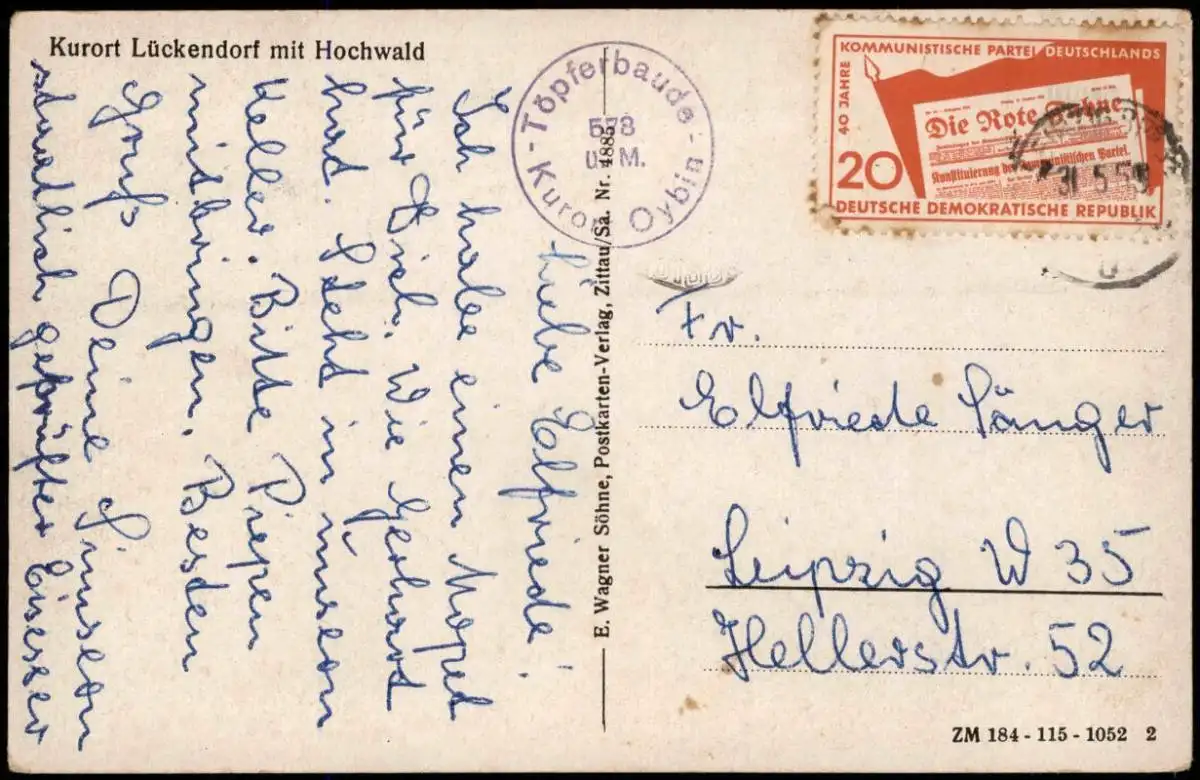 Kurort Lückendorf mit Hochwald
Töpferbaude
578
ü. M.
Kurort Oybin
KOMMUNISTISCHE PARTEI DEUTSCHLANDS
40 JAHRE
Die Rote Fahne
Konstituierung der Kommunistischen Partei.
20
DEUTSCHE DEMOKRATISCHE REPUBLIK
31.5.59
Liebe Elfriede!
Ich habe einen Moped
für Dich. Wie Gerhard
hat. Steht in unserm
Keller. Bitte Piepen
mitbringen. Besten
Gruß Deine
staatlich geprüfter
E. Wagner Söhne, Postkarten-Verlag, Zittau/Sa. Nr. 4885
Fr.
Elfriede Sänger
Leipzig W 35
Hellerstr. 52
ZM 184 - 115 - 1052 2